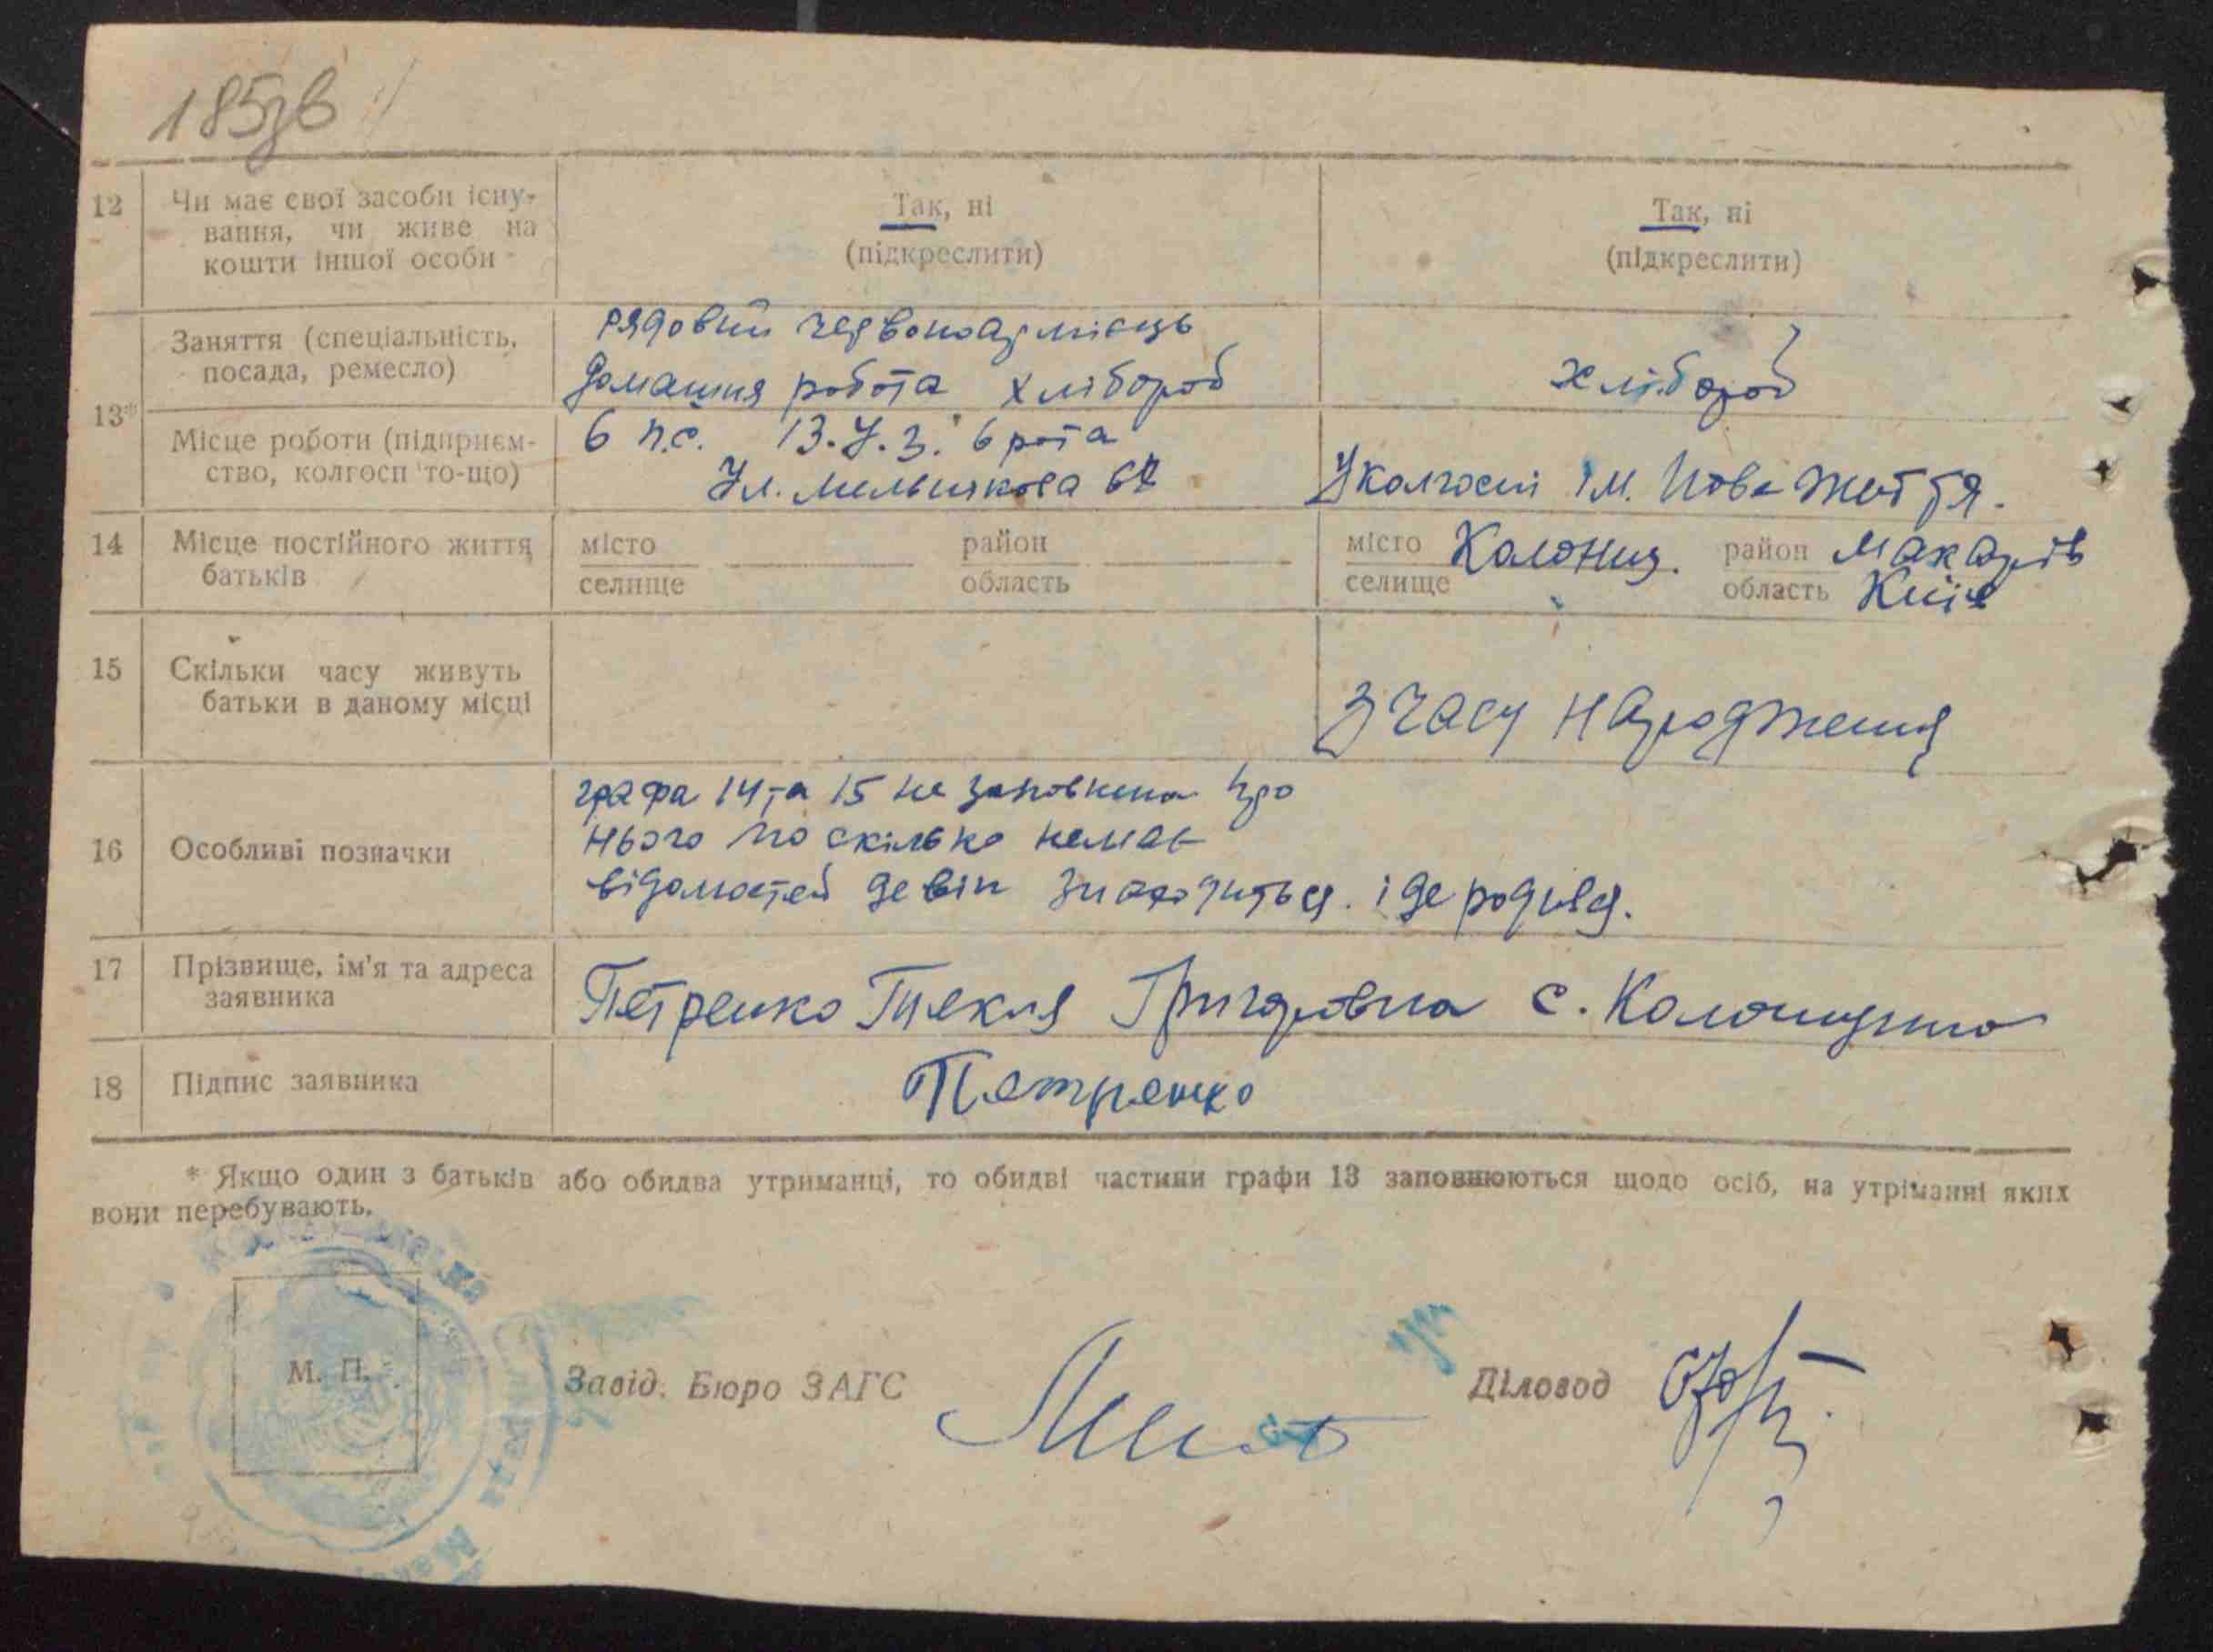 185зв
12 Чи має свої засоби існу-
вання, чи живе на
кошти іншої особи
Так, ні
(підкреслити)
Так, ні
(підкреслити)
13*
Заняття (спеціальність,
посада, ремесло)
рядовий червоноармієць
домашня робота хлібороб
хлібороб
Місце роботи (підприєм-
ство, колгосп то-що)
6 п.с. 13.У.З. 6 рота
Ул. Мельникова 62
У колгоспі ім. Нове життя.
14 Місце постійного життя
батьків
місто район
селище область
місто Колонщ. район Макарів
селище область Київ
15 Скільки часу живуть
батьки в даному місці
З часу народження
16 Особливі позначки
графа 14 та 15 не заповнена про
нього поскілько немає
відомостей де він знаходиться. і де родився.
17 Прізвище, ім'я та адреса
заявника
Петренко Текля Григоровна с. Колонщино
18 Підпис заявника
Петренко
* Якщо один з батьків або обидва утриманці, то обидві частини графи 13 заповнюються щодо осіб, на утріманні яких
вони перебувають.
М. П.
Завід. Бюро ЗАГС
Діловод